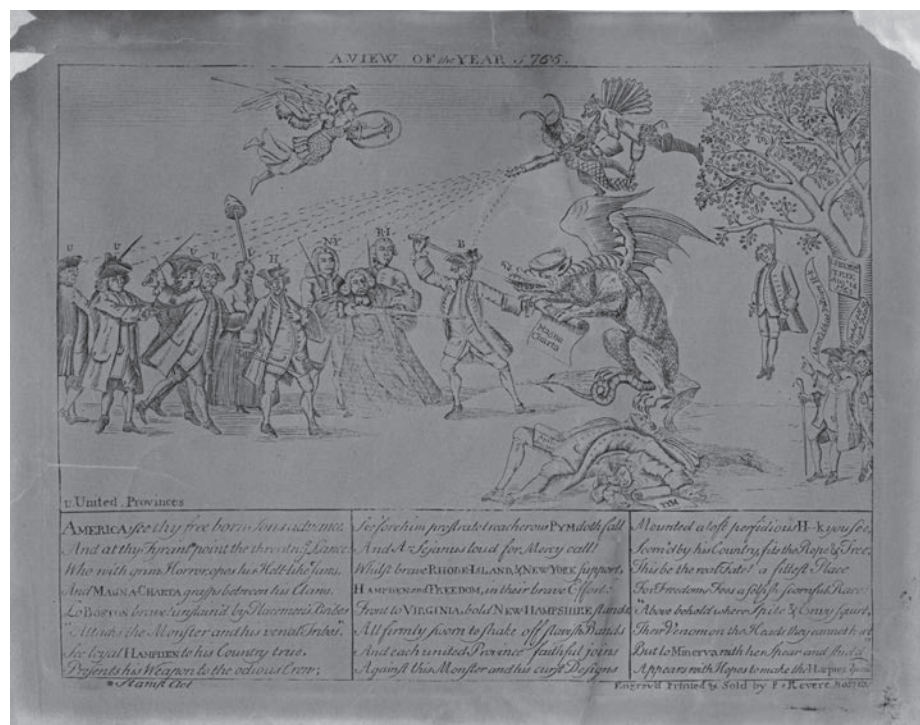 A VIEW OF the YEAR 1765.
U U U U V H N·Y R·I B
Magna
Charta
PYM
U. United Provinces
AMERICA see thy free born Sons advance,
And at thy Tyrant point the threat'ng Lance
Who with grim Horror opes his Hell-like Jaws,
And MAGNA CHARTA grasps between his Claws.
Lo BOSTON brave! unstain'd by Placemen's Bribes
"Attacks the Monster and his venal Tribes."
See loyal HAMPDEN to his Country true,
Presents his Weapon to the odious Crew;
* Stamp Act
See for him prostrate treacherous PYM doth fall
And A-Sejanus loud for Mercy call!
Whilst brave RHODE-ISLAND, & NEW YORK support,
HAMPDEN and FREEDOM, in their brave Effort:
Front to VIRGINIA, bold NEW-HAMPSHIRE stands,
All firmly sworn to shake off slavish Bands
And each united Province faithful joins
Against this Monster and his curst Designs
Mounted aloft perfidious H--k you see,
Scorn'd by his Country, fits the Rope & Tree,
This be the real fate! a fittest Place
For Freedoms Foes a selfish scornful Race!
"Above behold where Spite & Envy squirt,
Their Venom on the Heads they cannot hurt
But lo Minerva with her Spear and Shield
Appears with Hopes to make the Harpies
Engrav'd Printed & Sold by P. Revere BOSTON